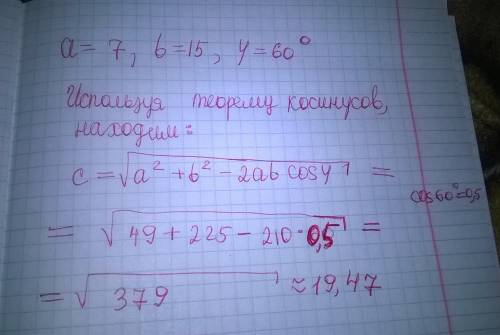 a = 7, b = 15, γ = 60°
Используя теорему косинусов,
находим:
c = √a² + b² - 2ab cosγ =
cos60°=0,5
= √49 + 225 - 210 · 0,5 =
= √379 ≈ 19,47